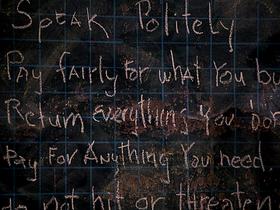 Speak Politely
Pay fairly for what You b
Return everything You bor
Pay For Anything You need.
do not hit or threaten